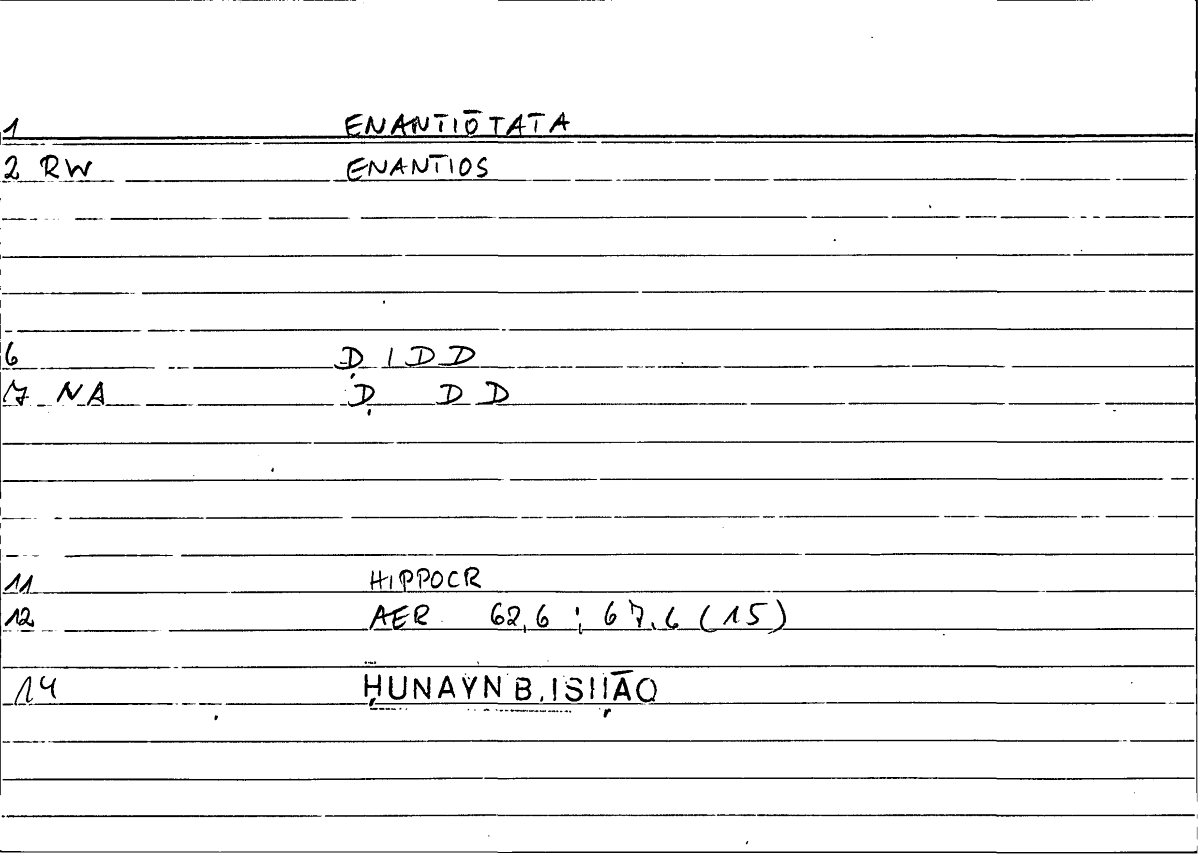 1 ENANTIŌTATA
2 RW ENANTIOS
6 Ḍ I D D
7 NA Ḍ D D
11 HIPPOCR
12 AER 62,6 ; 67,6 (15)
14 ḤUNAYN B. ISḤĀQ